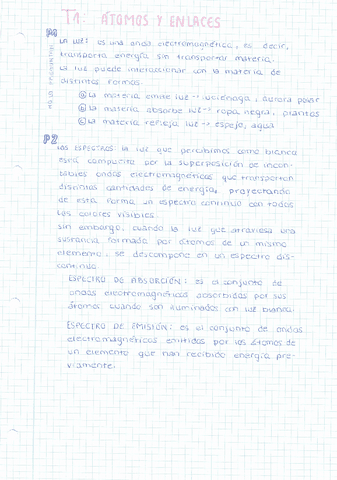 T1: ÁTOMOS Y ENLACES
P1
LA LUZ: es una onda electromagnética, es decir,
transporta energía sin transportar materia.
La luz puede interaccionar con la materia de
distintas formas.
a) La materia emite luz → luciérnaga, aurora polar
b) La materia absorbe luz → ropa negra, plantas
c) La materia refleja luz → espejo, agua
P2
LOS ESPECTROS: la luz que percibimos como blanca
está compuesta por la superposición de incon-
tables ondas electromagnéticas que transportan
distintas cantidades de energía, proyectando
de esta forma un espectro continuo con todos
los colores visibles.
Sin embargo, cuando la luz que atraviesa una
sustancia formada por átomos de un mismo
elemento, se descompone en un espectro dis-
continuo
ESPECTRO DE ABSORCIÓN: es el conjunto de
ondas electromagnéticas absorbidas por sus
átomos cuando son iluminados con luz blanca.
ESPECTRO DE EMISIÓN: es el conjunto de ondas
electromagnéticas emitidas por los átomos de
un elemento que han recibido energía pre-
viamente.